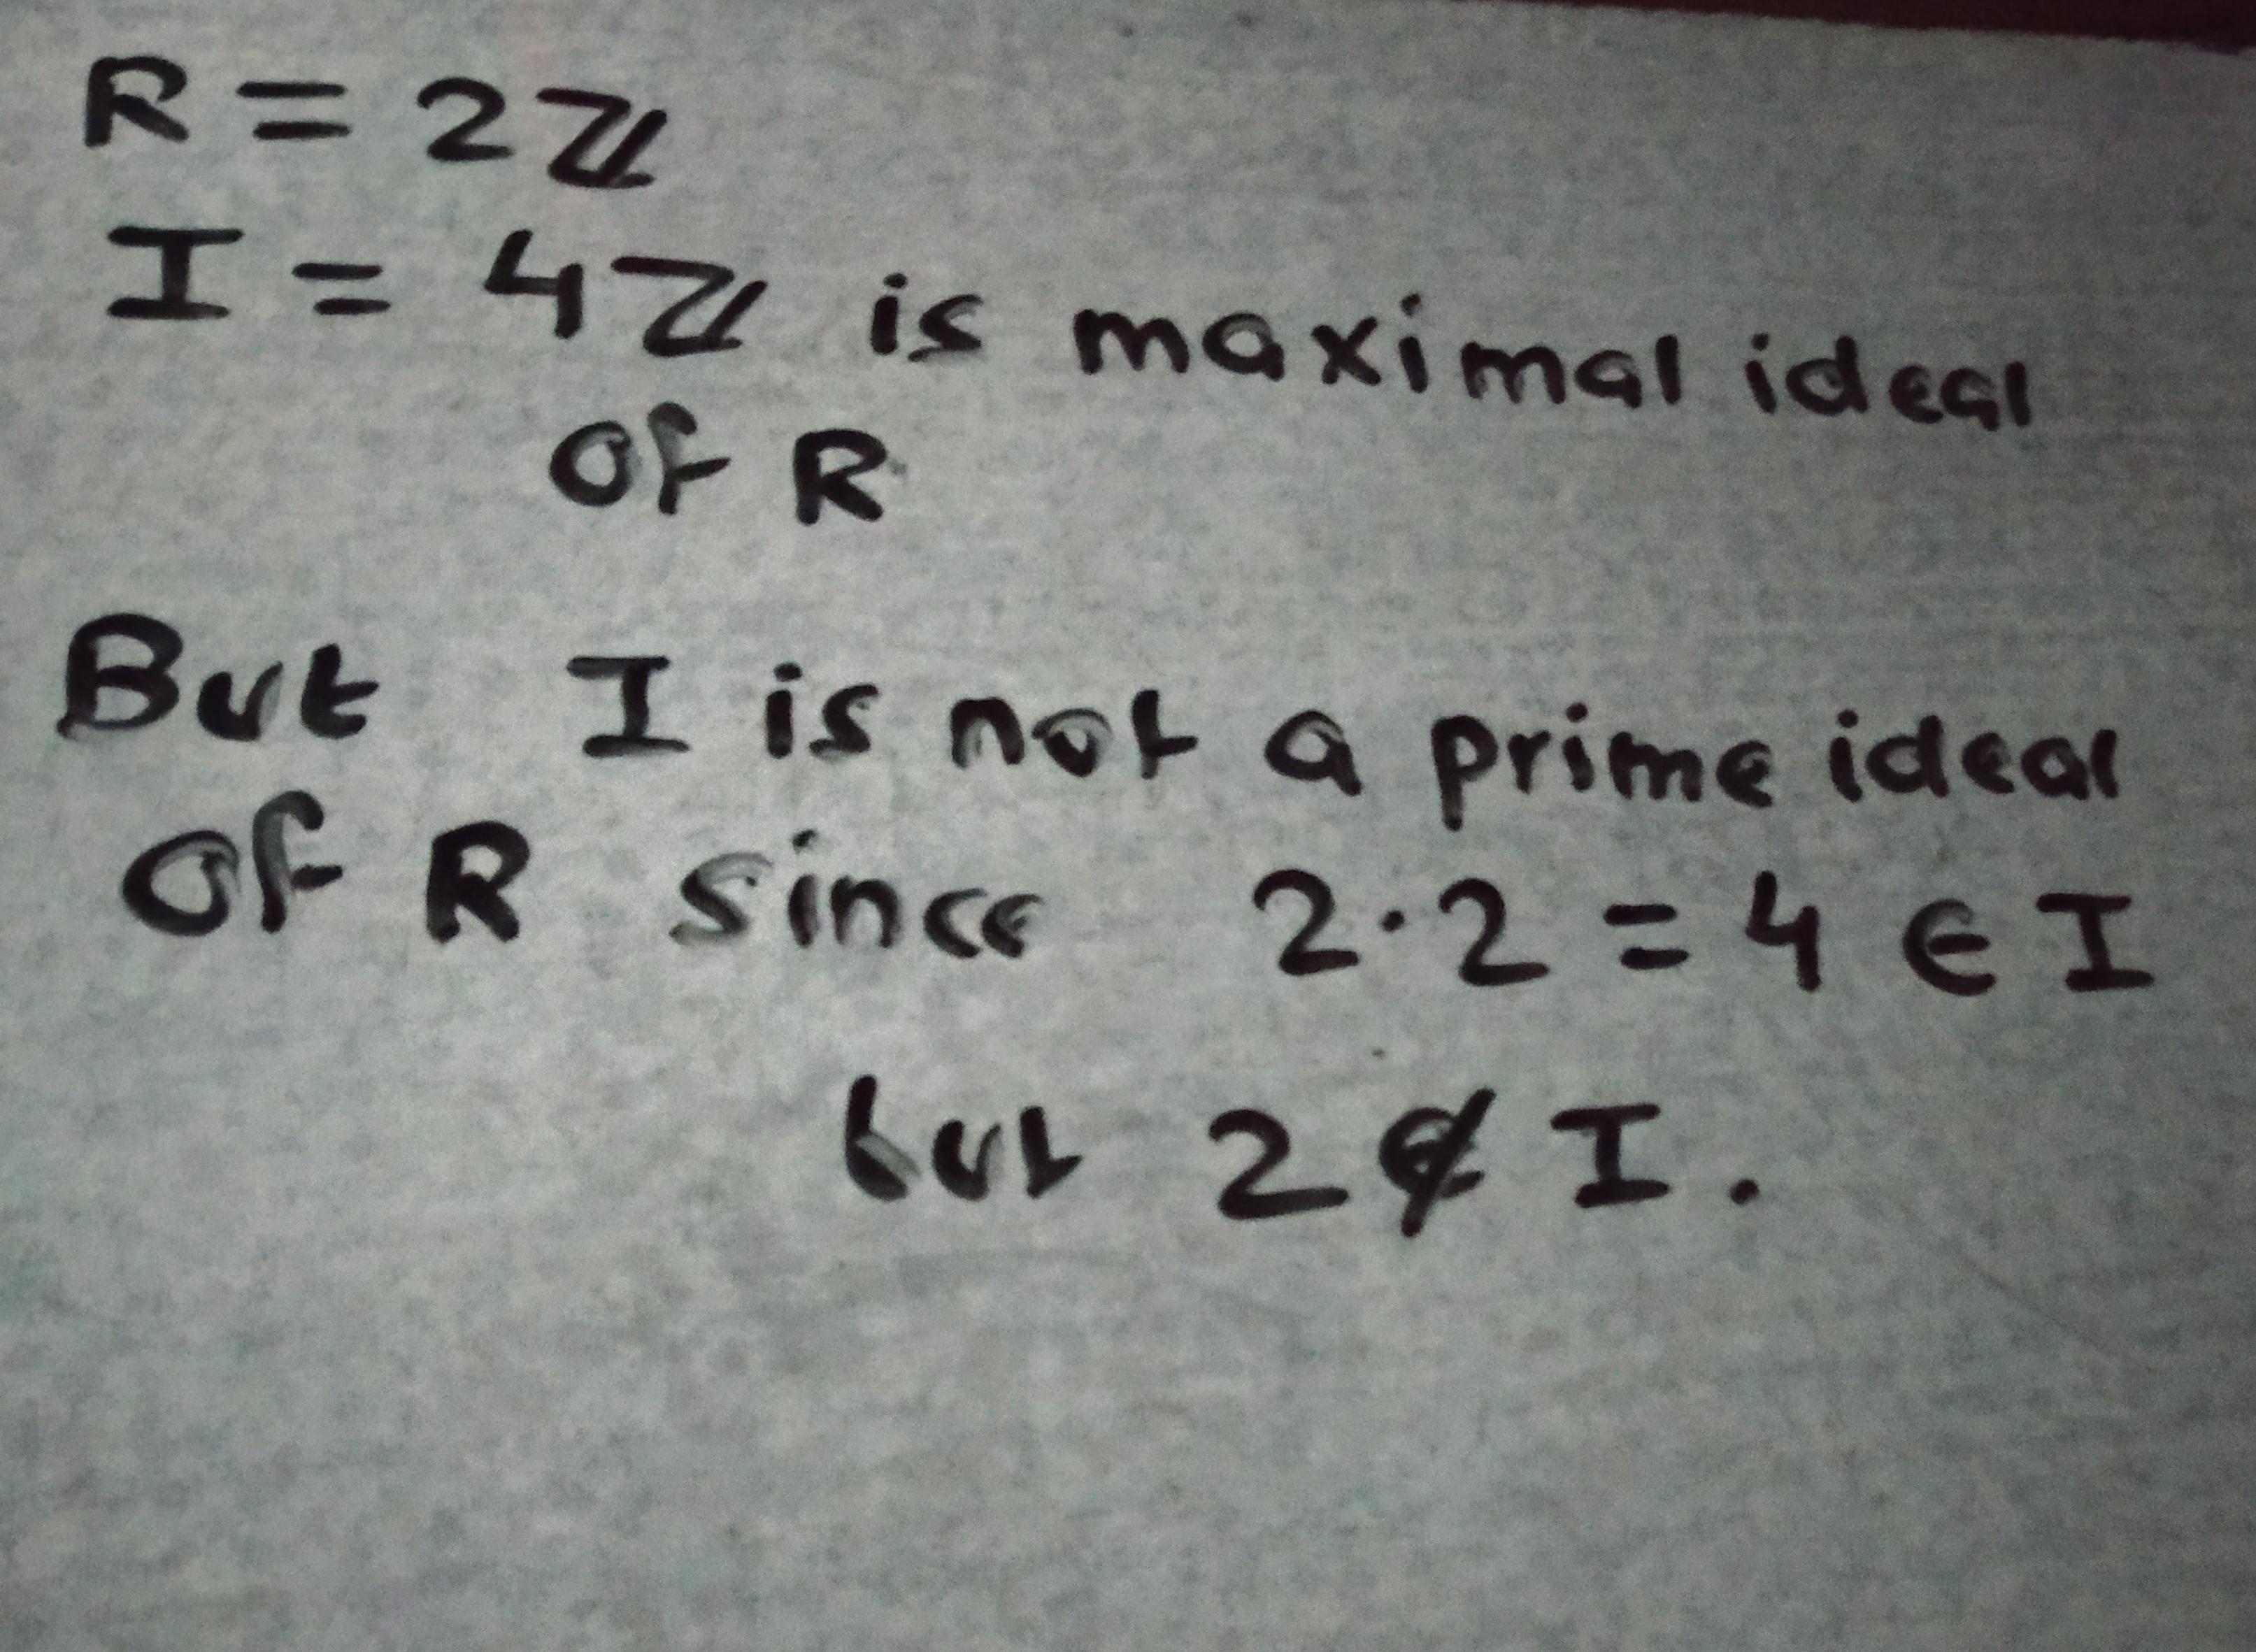 R = 2ℤ
I = 4ℤ is maximal ideal
of R
But I is not a prime ideal
of R since 2·2 = 4 ∈ I
but 2 ∉ I.